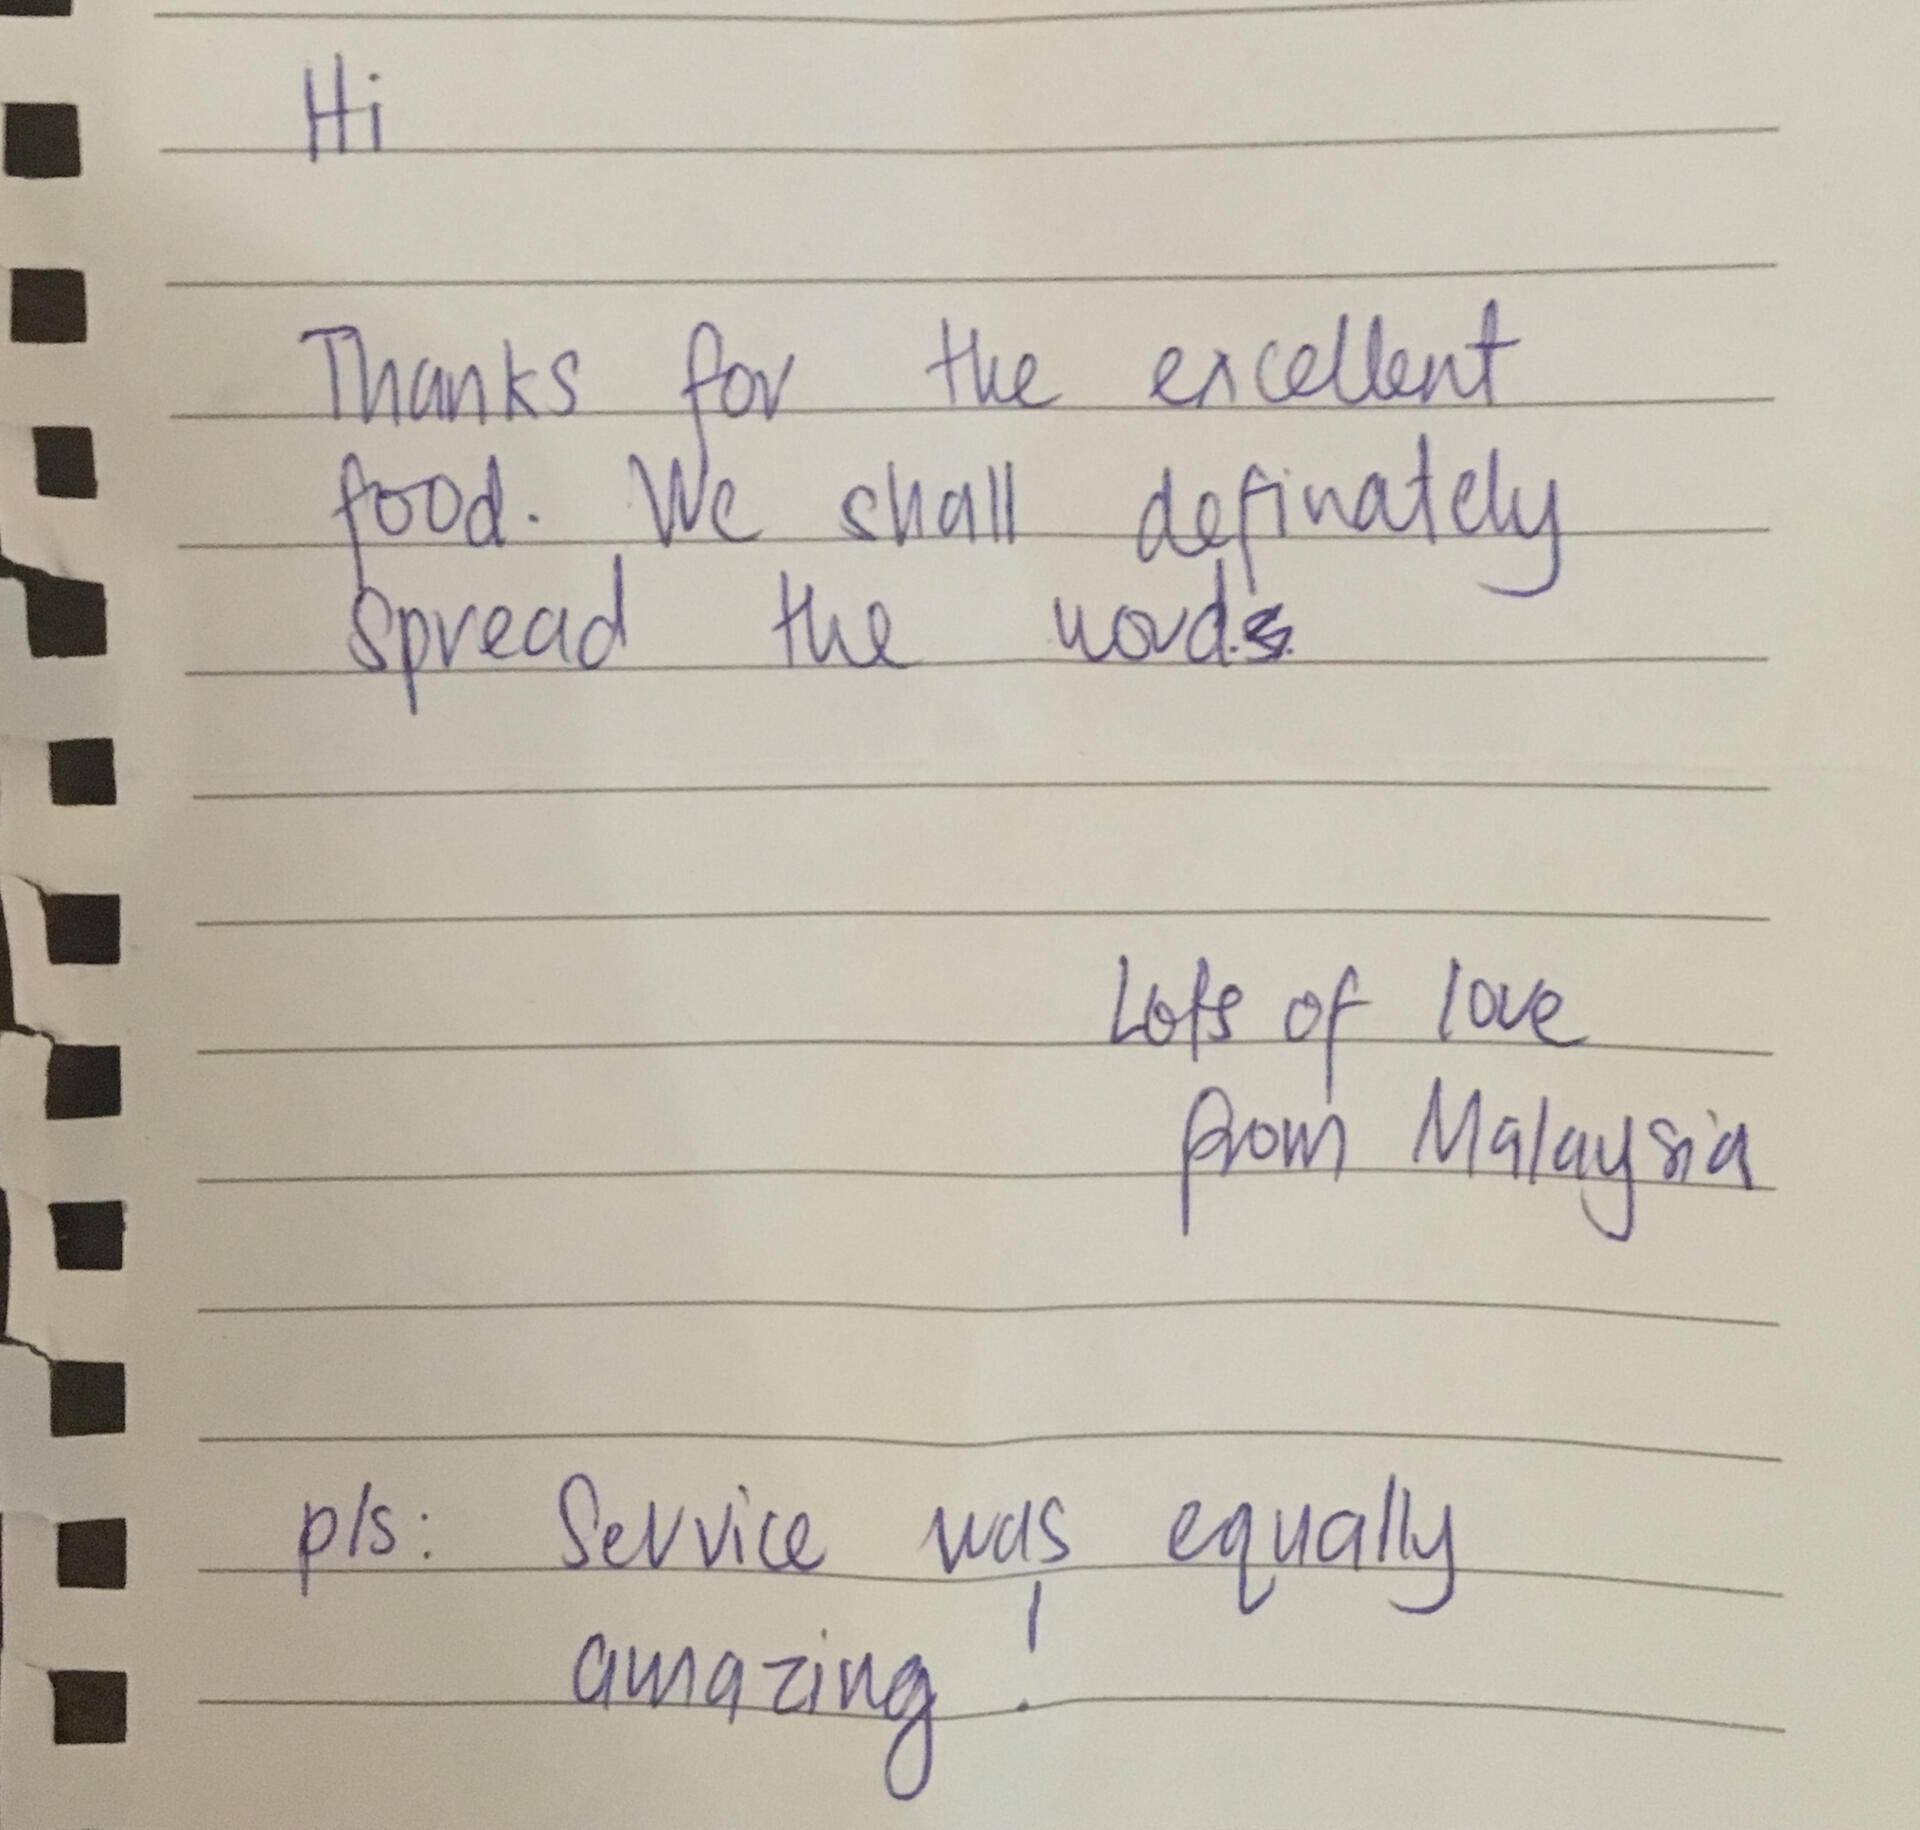 Hi
Thanks for the excellent
food. We shall definately
spread the words.
Lots of love
from Malaysia
p/s: Service was equally
amazing!